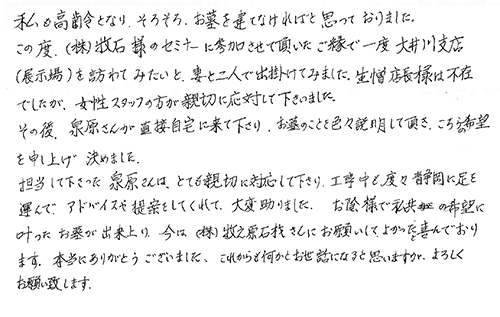 私も高齢令となり、そろそろ、お墓を建てなければと思っておりました。
この度、(株)牧石様のセミナーに参加させて頂いたご縁で一度大井川支店
(展示場)を訪わてみたいと、妻と二人で出掛けてみました。生憎店長様は不在
でしたが、女性スタッフの方が親切に応対して下さいました。
その後、泉原さんが直接自宅に来て下さり、お墓のことを色々説明して頂き、こちらの希望
を申し上げ決めました。
担当して下さった泉原さんは、とても親切に対応して下さり、工事中も度々静岡に足を
運んで、アドバイスや提案をしてくれて、大変助りました。お陰様で私共の希望に
叶ったお墓が出来上り、今は(株)牧之原石材さんにお願いしてよかったと喜んでおり
ます。本当にありがとうございました、これからも何かとお世話になると思いますが、よろしく
お願い致します。